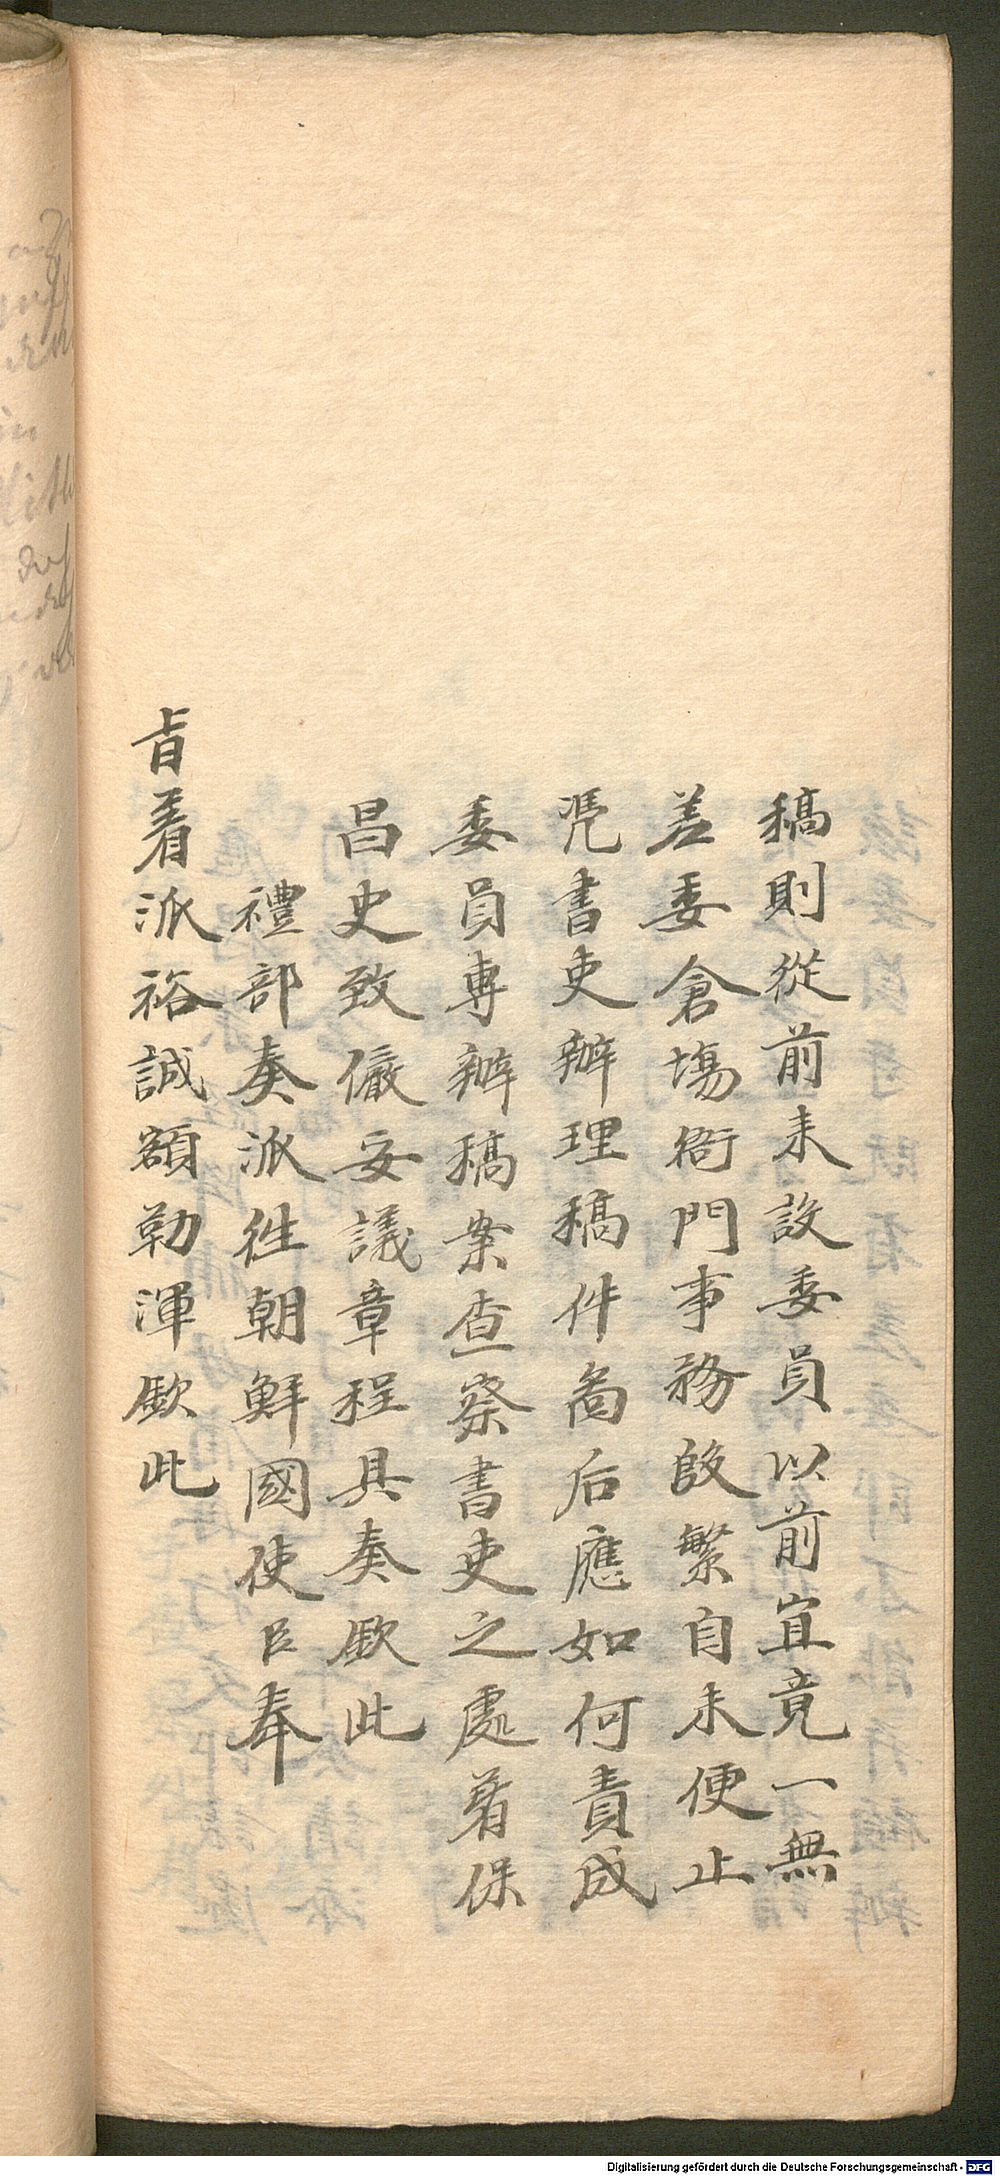 稿則從前未設委員以前豈竟一無
差委倉場衙門事務殷繁自未便止
凭書吏辦理稿件嗣后應如何責成
委員專辦稿案查察書吏之處着保
昌史致儼妥議章程具奏欽此
禮部奏派徃朝鮮國使臣奉
旨着派裕誠額勒渾欽此
Digitalisierung gefördert durch die Deutsche Forschungsgemeinschaft - DFG